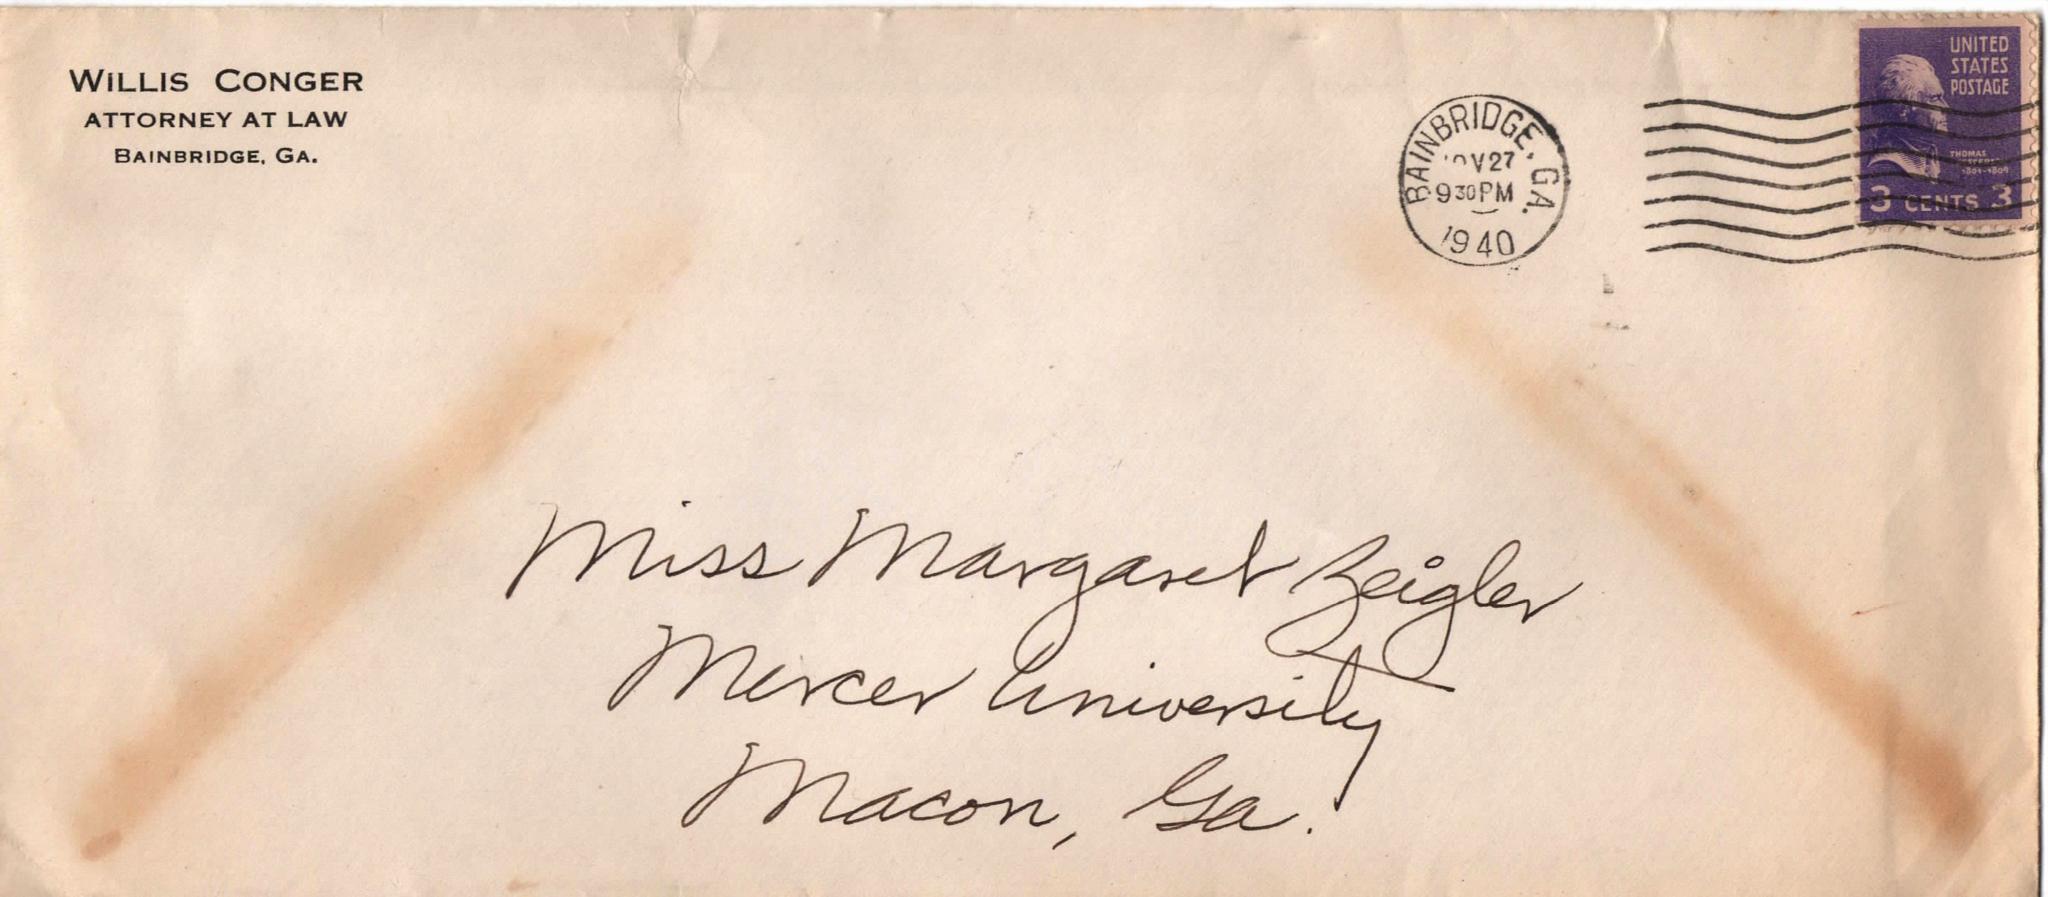 WILLIS CONGER
ATTORNEY AT LAW
BAINBRIDGE, GA.
BAINBRIDGE, GA.
27
9 30 PM
1940
UNITED
STATES
POSTAGE
THOMAS
1801-1809
3 CENTS 3
Miss Margaret Zeigler
Mercer University
Macon, Ga.